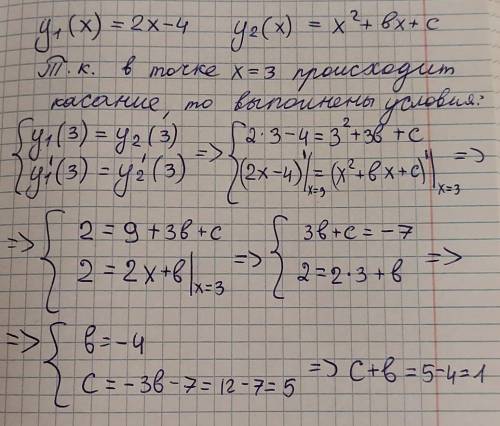 y₁(x) = 2x-4 y₂(x) = x²+вx+c
Т.к. в точке x=3 происходит
касание, то выполнены условия:
{ y₁(3) = y₂(3) => { 2·3-4=3²+3в+c
{ y₁'(3) = y₂'(3) { (2x-4)'|x=3 = (x²+вx+c)'|x=3 =>
=> { 2 = 9+3в+c => { 3в+c = -7
{ 2 = 2x+в|x=3 { 2=2·3+в =>
=> { в=-4
{ c = -3в-7=12-7=5 => c+в=5-4=1